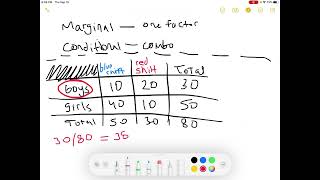 Marginal — one factor
Conditional = combo
blue shirt red shirt Total
boys 10 20 30
girls 40 10 50
Total 50 30 80
30/80 = 38